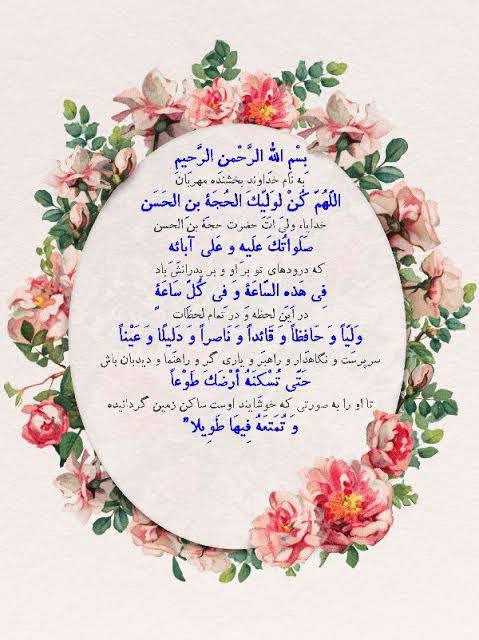 بِسْمِ اللهِ الرَّحْمنِ الرَّحیمِ
به نام خداوند بخشنده مهربان
اللّهُمَّ کُنْ لِوَلِیِّکَ الحُجَةِ بنِ الحَسَن
خدایا، ولیّ ات حضرت حجة بن الحسن
صَلَواتُکَ علَیهِ و عَلی آبائِه
که درودهای تو بر او و بر پدرانش باد
فِی هَذِه السَّاعَةِ وَ فِی کُلِّ سَاعَةٍ
در این لحظه و در تمام لحظات
وَلِیّاً وَ حَافِظاً وَ قَائِداً وَ نَاصِراً وَ دَلِیلًا وَ عَیْناً
سرپرست و نگاهدار و راهبر و یاری گر و راهنما و دیدبان باش
حَتَّى تُسْکِنَهُ أَرْضَکَ طَوْعاً
تا او را به صورتی که خوشایند اوست ساکن زمین گردانیده
وَ تُمَتعَهُ فِیهَا طَوِیلا"